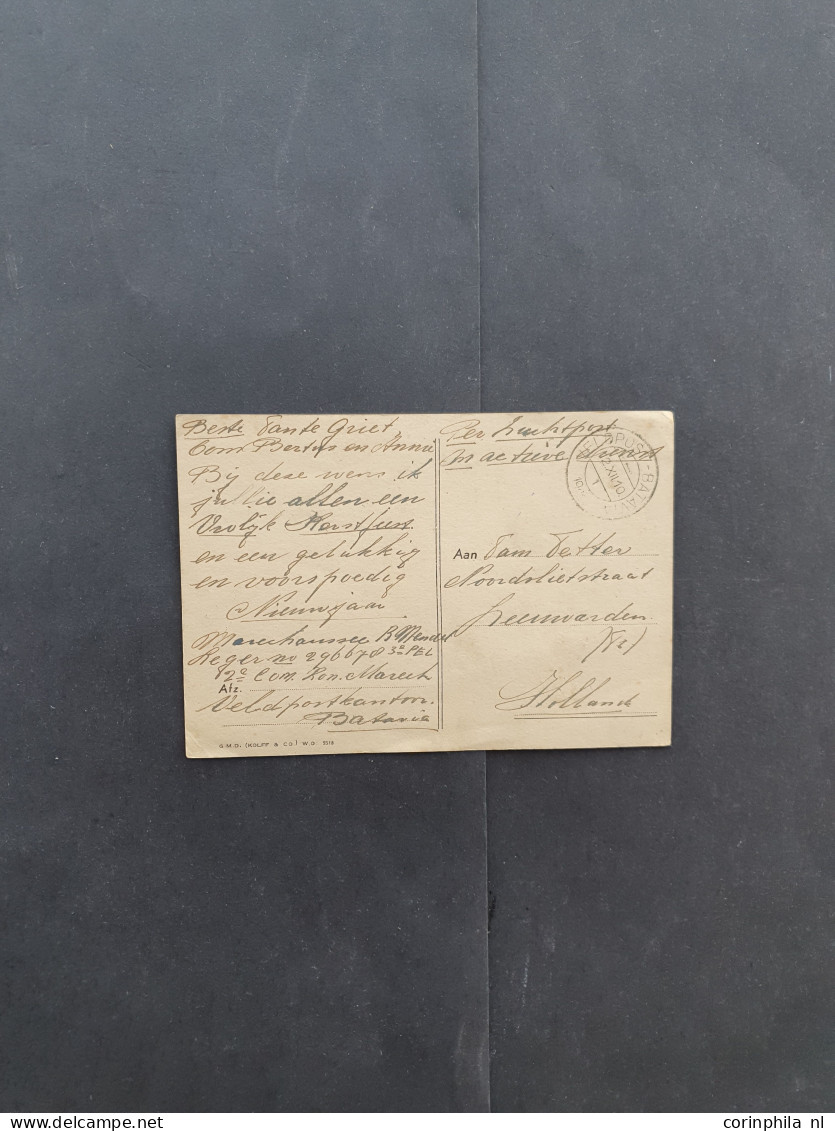 Beste Tante Griet,
Oom Bertus en Annie
Bij deze wens ik
jullie allen een
Vrolijk Kerstfeest
en een gelukkig
en voorspoedig
Nieuwjaar
Marechaussee R Mendel
Leger no 296678 3e PEL
2e Com. Kon. Marech
Afz.
Veldpostkantoor
Batavia
G.M.D. (KOLFF & CO.) W.O.
Per Luchtpost
In actieve dienst
VELDPOST-BATAVIA
2.XII.10
1
Aan Fam Tetter
Noordvlietstraat
Leeuwarden
(Fr)
Holland
corinphila nl